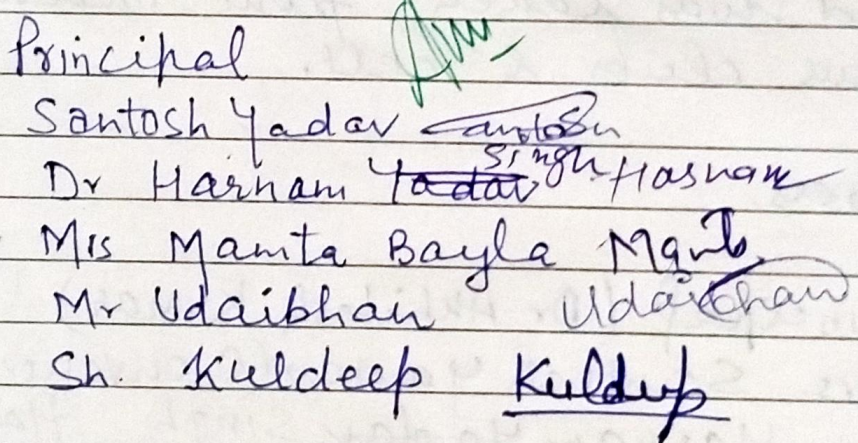 Principal
Santosh Yadav Santosh
Dr Harnam Singh Harnam
Mrs Mamta Bayla
Mr Udaibhan Udaibhan
Sh. Kuldeep Kuldeep